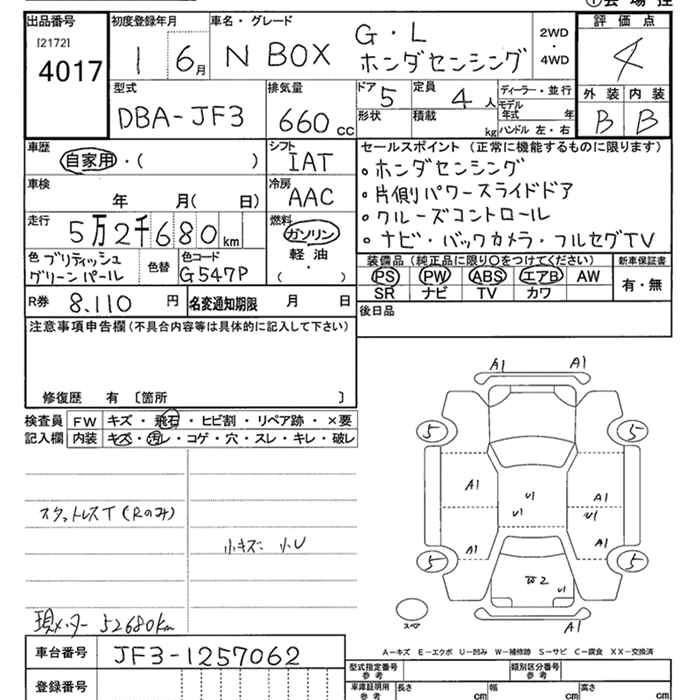 ①会場控
出品番号 初度登録年月 車名・グレード 評価点
[2172]
4017
1 6月 N BOX G・L ホンダセンシング 2WD・4WD 4
型式 排気量 ドア 定員 ディーラー・並行 外装 内装
DBA-JF3 660cc 5 4人 モデル年式 年 B B
形状 積載 kg ハンドル 左・右
車歴 シフト セールスポイント (正常に機能するものに限ります)
自家用・( ) IAT
・ホンダセンシング
車検 冷房
年 月( 日) AAC
・片側パワースライドドア
走行 燃料
5万2千680km ガソリン
・クルーズコントロール
軽油
・ナビ・バックカメラ・フルセグTV
色 ブリティッシュグリーンパール 色替 色コード G547P ( ・ )
装備品 (純正品に限り○をつけてください) 新車保証書
PS PW ABS エアB AW 有・無
SR ナビ TV カワ
R券 8.110 円 名変通知期限 月 日
後日品
注意事項申告欄(不具合内容等は具体的に記入して下さい)
修復歴 有 〔箇所 〕
検査員 FW キズ・飛石・ヒビ割・リペア跡・×要
記入欄 内装 キズ・汚レ・コゲ・穴・スレ・キレ・破レ
A1 A1
5 5
A1 U1 A1
U1 U1
A1 A1
5 5
W2 U1
A1
スペア
スタットレスT(Rのみ)
小キズ 小U
現メーター 52680km
A-キズ E-エクボ U-凹み W-補修跡 S-サビ C-腐食 XX-交換済
車台番号 JF3-1257062
型式指定番号 参考 類別区分番号 参考
登録番号
車庫証明用 参考 長さ cm 幅 cm 高さ cm